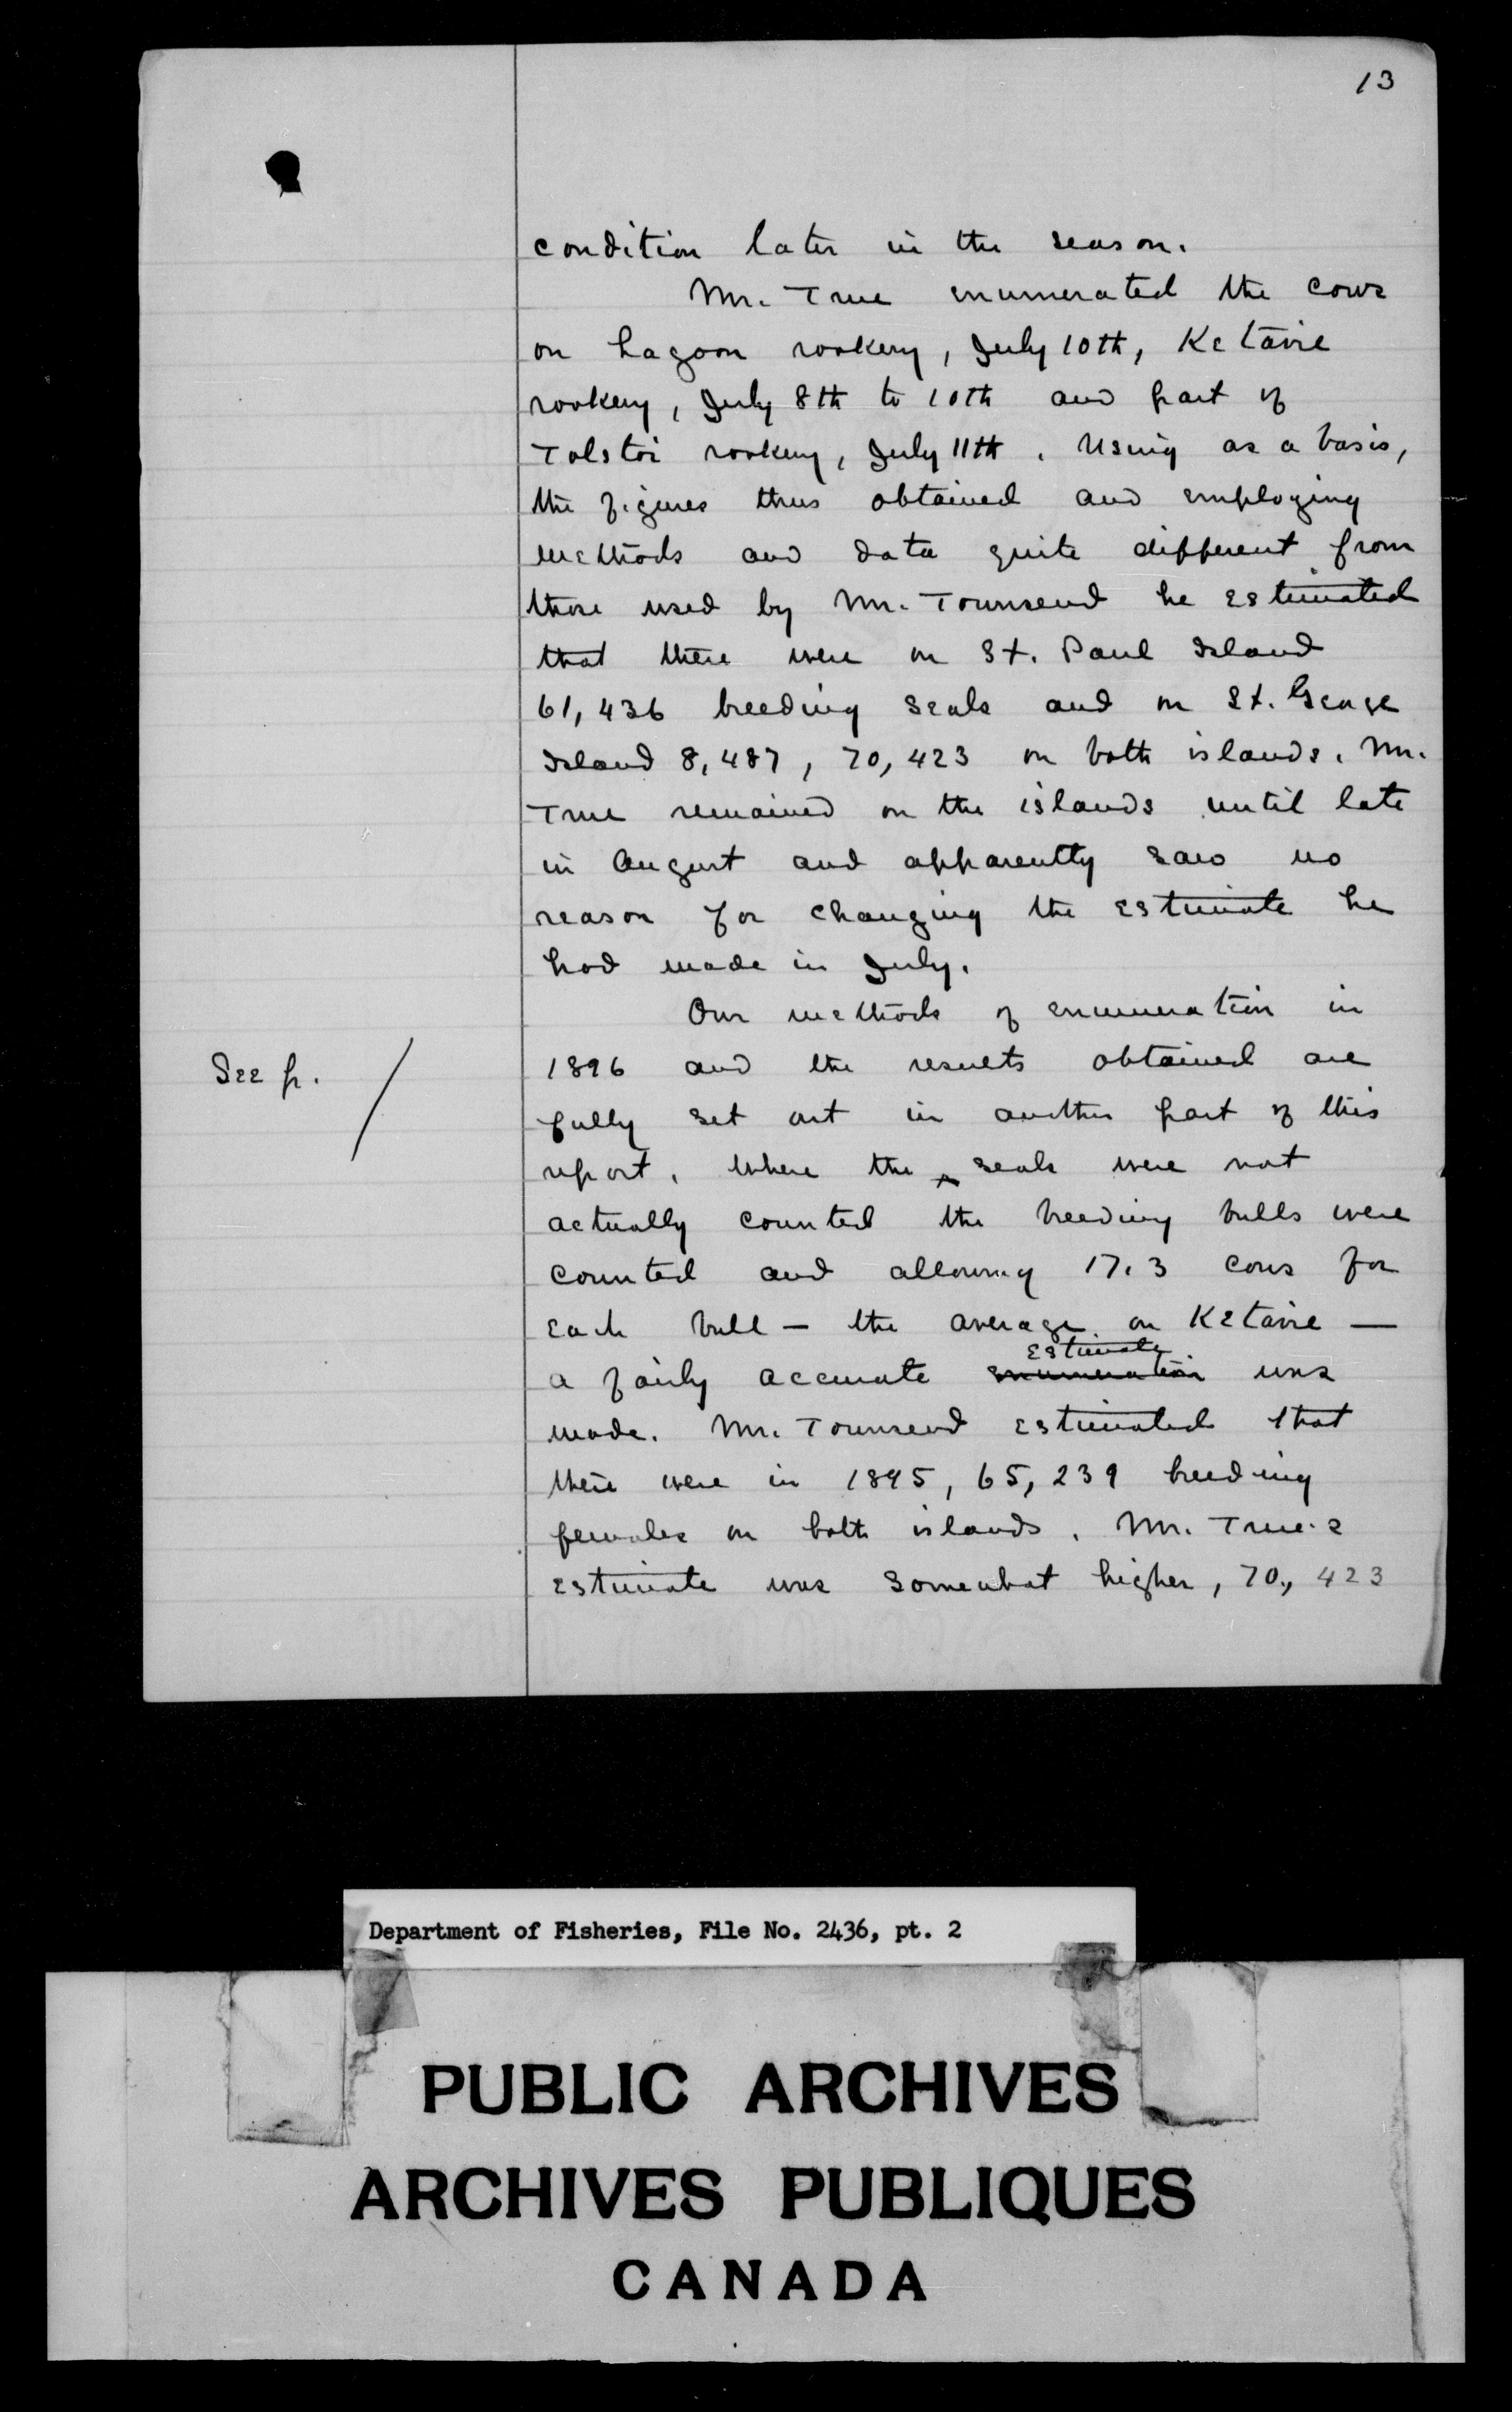 13
condition later in the season.
Mr. True enumerated the cows
on Lagoon rookery, July 10th, Ketavie
rookery, July 8th to 10th and part of
Tolstoi rookery, July 11th. Using as a basis,
the figures thus obtained and employing
methods and data quite different from
those used by Mr. Townsend he estimated
that there were on St. Paul Island
61,436 breeding seals and on St. George
Island 8,487, 70,423 on both islands. Mr.
True remained on the islands until late
in August and apparently saw no
reason for changing the estimate he
had made in July.
Our methods of enumeration in
See p. /
1896 and the results obtained are
fully set out in another part of this
report. Where the ^ seals were not
actually counted the breeding bulls were
counted and allowing 17.3 cows for
each bull — the average on Ketavie —
estimate
a fairly accurate enumeration was
made. Mr. Townsend estimated that
there were in 1895, 65,239 breeding
females on both islands. Mr. True's
estimate was somewhat higher, 70,423
Department of Fisheries, File No. 2436, pt. 2
PUBLIC ARCHIVES
ARCHIVES PUBLIQUES
CANADA